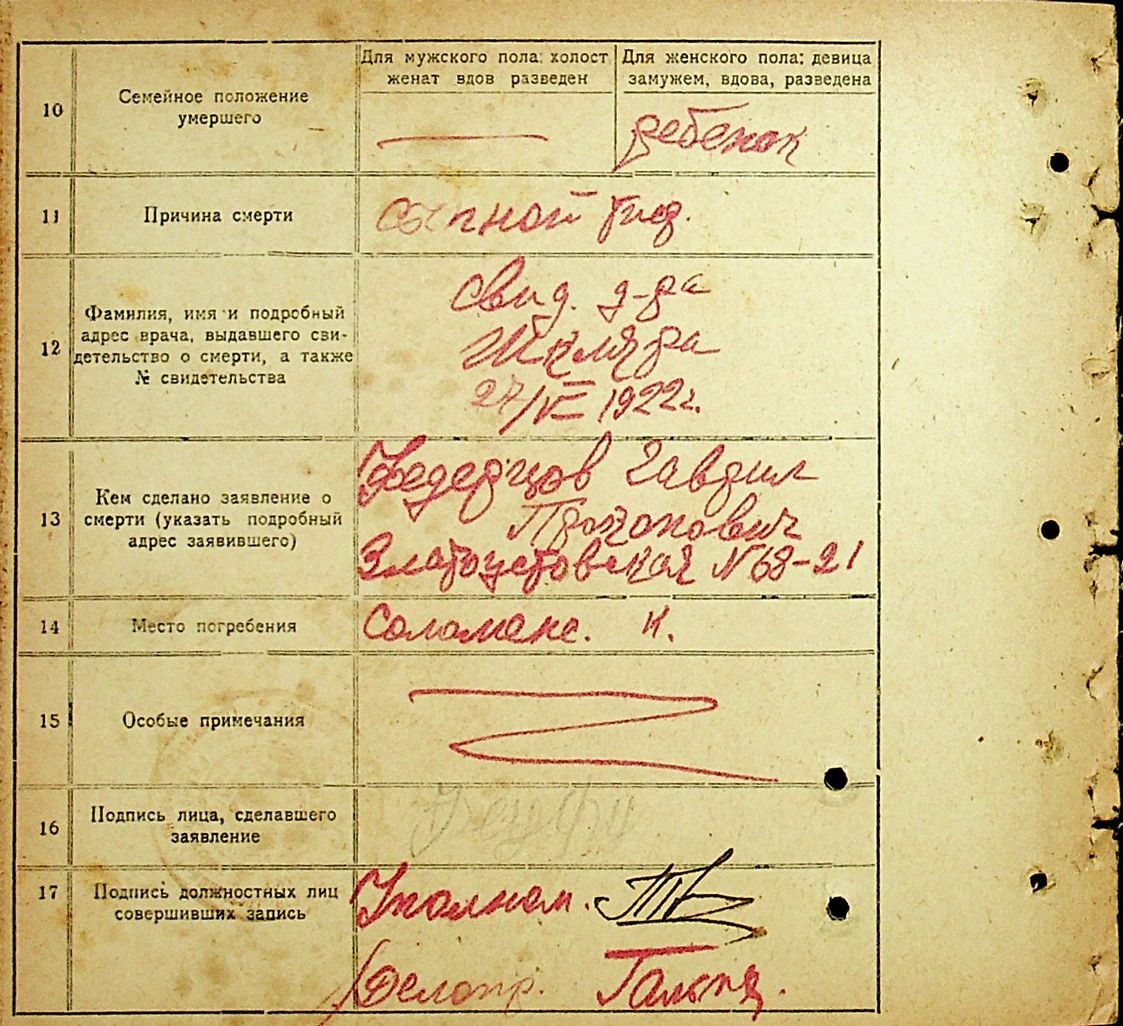 Для мужского пола: холост
женат вдов разведен
Для женского пола: девица
замужем, вдова, разведена
10
Семейное положение
умершего
ребенок
11
Причина смерти
сыпной тиф.
12
Фамилия, имя и подробный
адрес врача, выдавшего сви-
детельство о смерти, а также
№ свидетельства
Свид. д-ра
Шкляра
27/IV 1922г.
13
Кем сделано заявление о
смерти (указать подробный
адрес заявившего)
Гаврил
Прокопович
Златоустовская N 68-21
14
Место погребения
Соломенс. к.
15
Особые примечания
16
Подпись лица, сделавшего
заявление
17
Подпись должностных лиц
совершивших запись
Уполном.
Делопр.